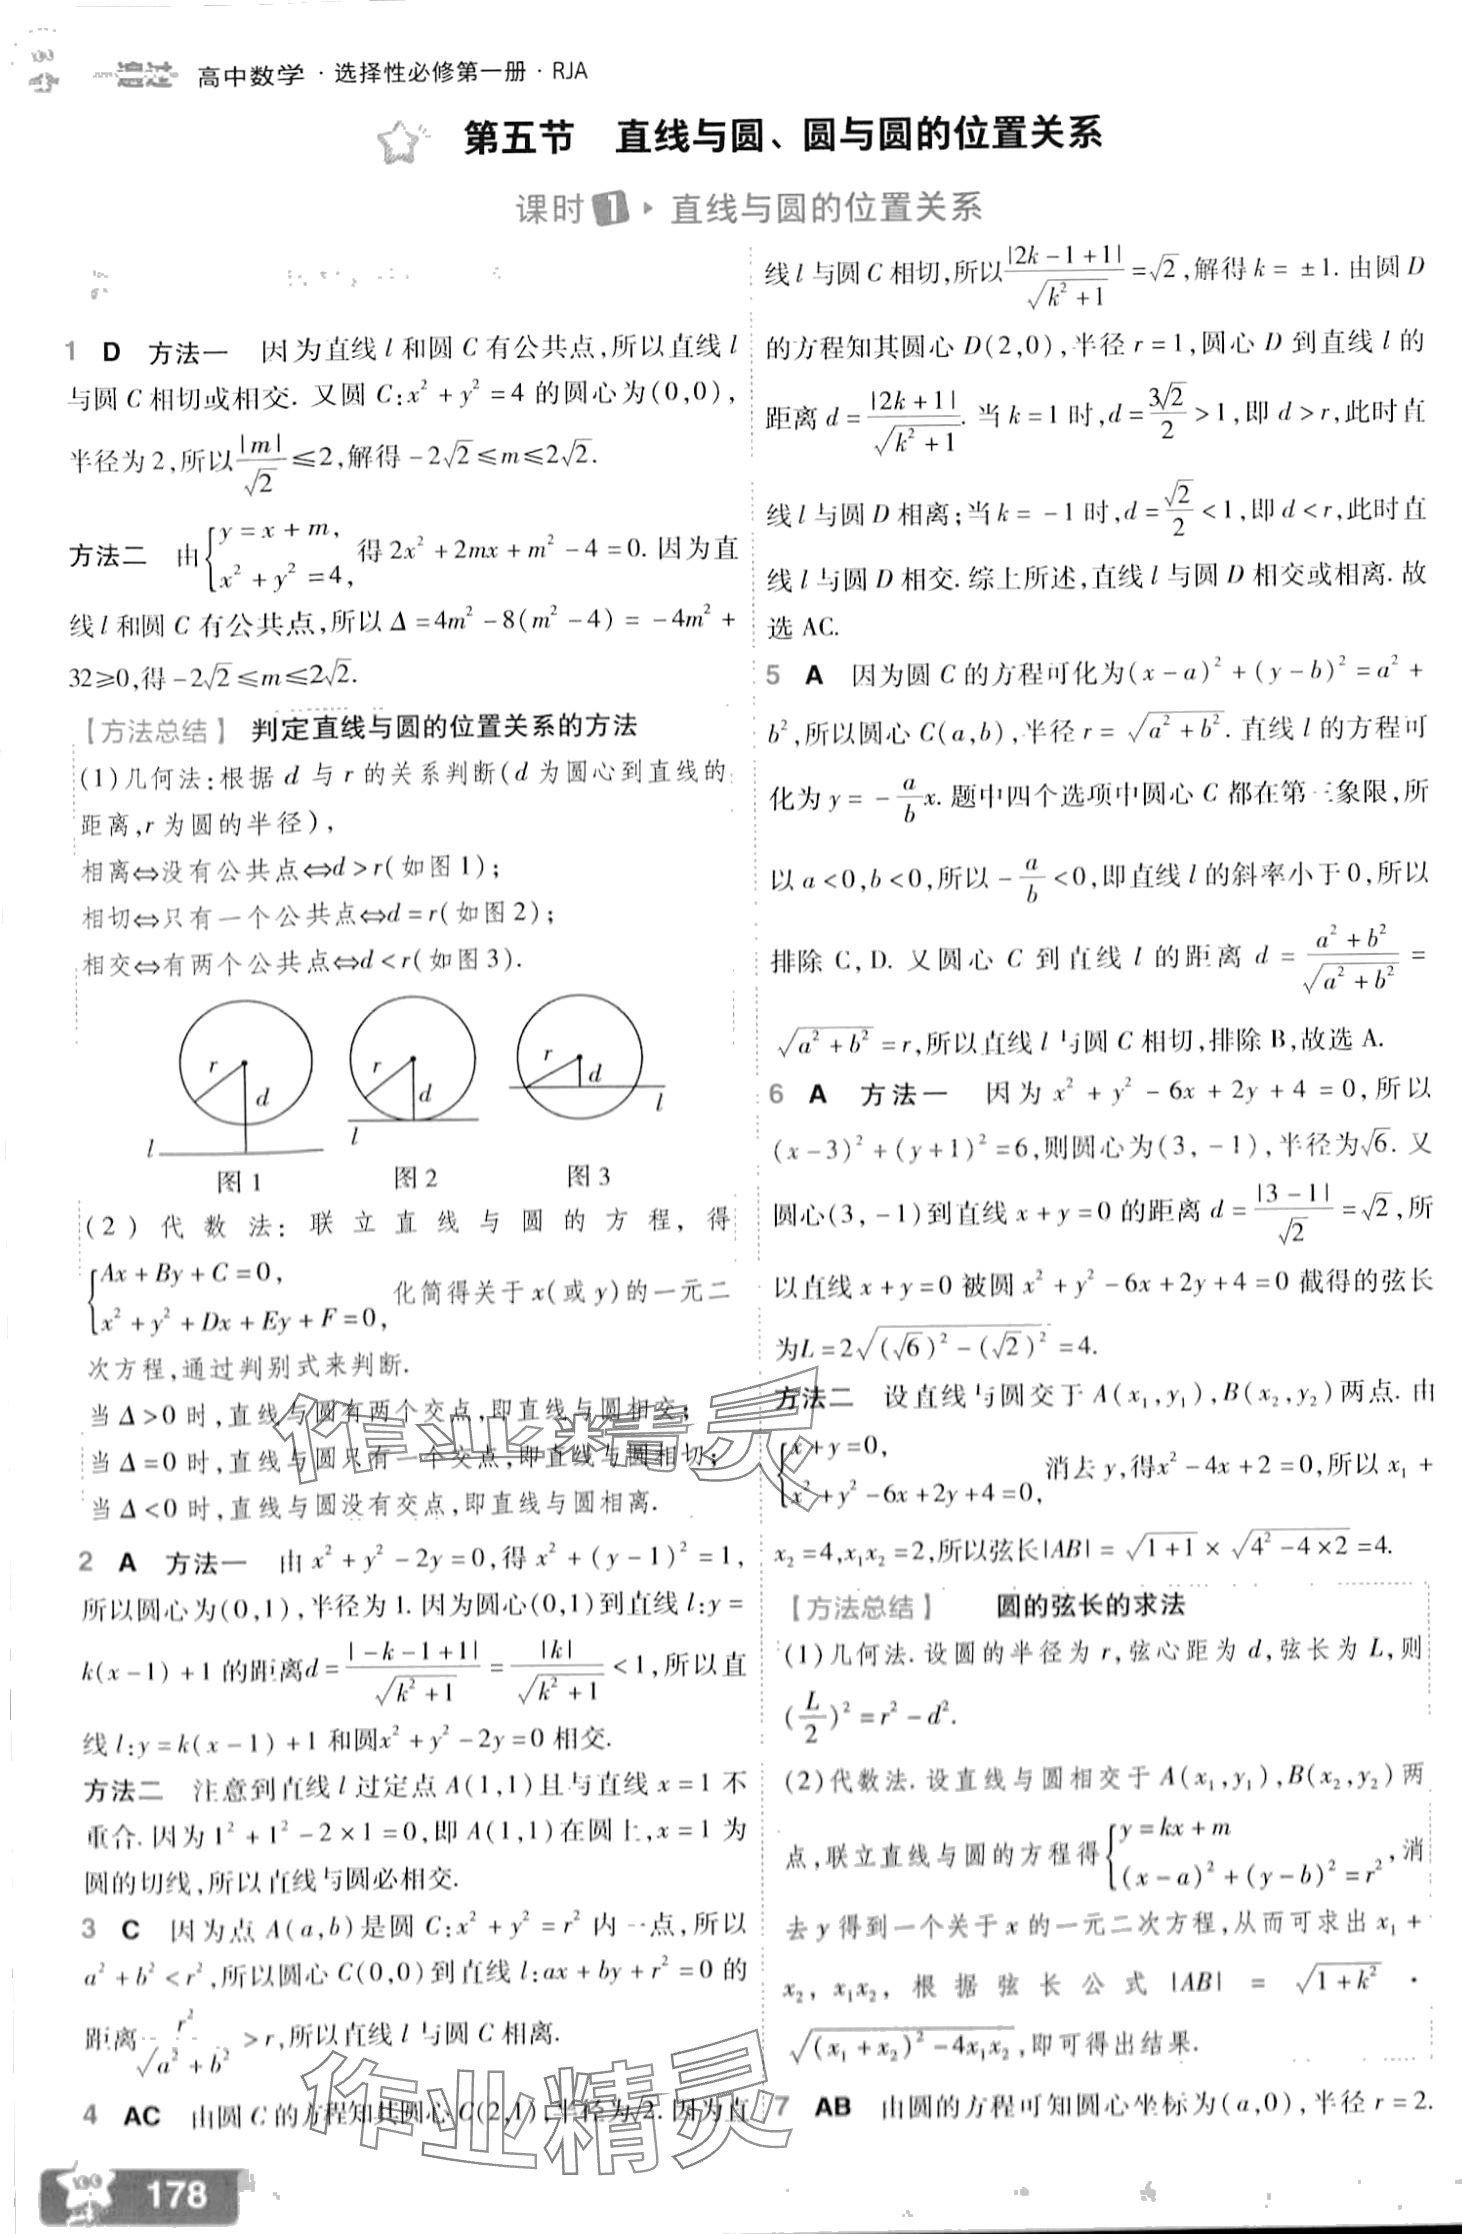 一遍过 高中数学·选择性必修第一册·RJA
第五节 直线与圆、圆与圆的位置关系
课时1 直线与圆的位置关系
1 D 方法一 因为直线l和圆C有公共点,所以直线l
与圆C相切或相交. 又圆C:x²+y²=4的圆心为(0,0),
半径为2,所以|m|/√2≤2,解得-2√2≤m≤2√2.
方法二 由{y=x+m, x²+y²=4, 得2x²+2mx+m²-4=0. 因为直
线l和圆C有公共点,所以Δ=4m²-8(m²-4)=-4m²+
32≥0,得-2√2≤m≤2√2.
【方法总结】 判定直线与圆的位置关系的方法
(1)几何法:根据d与r的关系判断(d为圆心到直线的
距离,r为圆的半径),
相离⇔没有公共点⇔d>r(如图1);
相切⇔只有一个公共点⇔d=r(如图2);
相交⇔有两个公共点⇔d<r(如图3).
r d l r d l r d l
图1 图2 图3
(2)代数法:联立直线与圆的方程,得
{Ax+By+C=0, x²+y²+Dx+Ey+F=0, 化简得关于x(或y)的一元二
次方程,通过判别式来判断.
当Δ>0时,直线与圆有两个交点,即直线与圆相交;
当Δ=0时,直线与圆只有一个交点,即直线与圆相切;
当Δ<0时,直线与圆没有交点,即直线与圆相离.
2 A 方法一 由x²+y²-2y=0,得x²+(y-1)²=1,
所以圆心为(0,1),半径为1. 因为圆心(0,1)到直线l:y=
k(x-1)+1的距离d=|-k-1+1|/√(k²+1)=|k|/√(k²+1)<1,所以直
线l:y=k(x-1)+1和圆x²+y²-2y=0相交.
方法二 注意到直线l过定点A(1,1)且与直线x=1不
重合. 因为1²+1²-2×1=0,即A(1,1)在圆上,x=1为
圆的切线,所以直线与圆必相交.
3 C 因为点A(a,b)是圆C:x²+y²=r²内一点,所以
a²+b²<r²,所以圆心C(0,0)到直线l:ax+by+r²=0的
距离r²/√(a²+b²)>r,所以直线l与圆C相离.
4 AC 由圆C的方程知其圆心C(2,1),半径为√2. 因为直
178
线l与圆C相切,所以|2k-1+1|/√(k²+1)=√2,解得k=±1. 由圆D
的方程知其圆心D(2,0),半径r=1,圆心D到直线l的
距离d=|2k+1|/√(k²+1). 当k=1时,d=3√2/2>1,即d>r,此时直
线l与圆D相离;当k=-1时,d=√2/2<1,即d<r,此时直
线l与圆D相交. 综上所述,直线l与圆D相交或相离. 故
选AC.
5 A 因为圆C的方程可化为(x-a)²+(y-b)²=a²+
b²,所以圆心C(a,b),半径r=√(a²+b²). 直线l的方程可
化为y=-a/b x. 题中四个选项中圆心C都在第三象限,所
以a<0,b<0,所以-a/b<0,即直线l的斜率小于0,所以
排除C,D. 又圆心C到直线l的距离d=(a²+b²)/√(a²+b²)=
√(a²+b²)=r,所以直线l与圆C相切,排除B,故选A.
6 A 方法一 因为x²+y²-6x+2y+4=0,所以
(x-3)²+(y+1)²=6,则圆心为(3,-1),半径为√6. 又
圆心(3,-1)到直线x+y=0的距离d=|3-1|/√2=√2,所
以直线x+y=0被圆x²+y²-6x+2y+4=0截得的弦长
为L=2√((√6)²-(√2)²)=4.
方法二 设直线与圆交于A(x₁,y₁),B(x₂,y₂)两点. 由
{x+y=0, x²+y²-6x+2y+4=0, 消去y,得x²-4x+2=0,所以x₁+
x₂=4,x₁x₂=2,所以弦长|AB|=√(1+1)×√(4²-4×2)=4.
【方法总结】 圆的弦长的求法
(1)几何法. 设圆的半径为r,弦心距为d,弦长为L,则
(L/2)²=r²-d².
(2)代数法. 设直线与圆相交于A(x₁,y₁),B(x₂,y₂)两
点,联立直线与圆的方程得{y=kx+m (x-a)²+(y-b)²=r², 消
去y得到一个关于x的一元二次方程,从而可求出x₁+
x₂,x₁x₂,根据弦长公式|AB|=√(1+k²)·
√((x₁+x₂)²-4x₁x₂),即可得出结果.
7 AB 由圆的方程可知圆心坐标为(a,0),半径r=2.
作业精灵
作业精灵